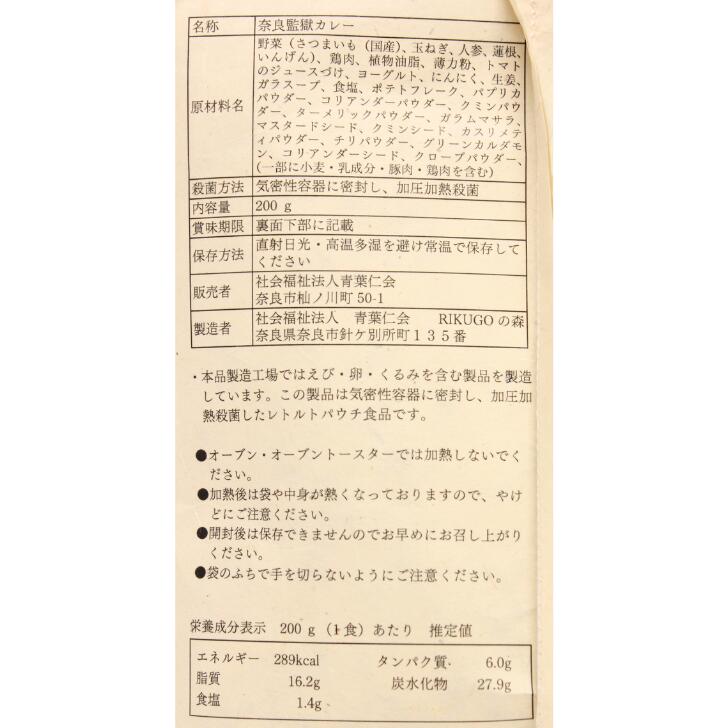 名称 奈良監獄カレー
原材料名 野菜（さつまいも（国産）、玉ねぎ、人参、蓮根、
いんげん）、鶏肉、植物油脂、薄力粉、トマト
のジュースづけ、ヨーグルト、にんにく、生姜、
ガラスープ、食塩、ポテトフレーク、パプリカ
パウダー、コリアンダーパウダー、クミンパウ
ダー、ターメリックパウダー、ガラムマサラ、
マスタードシード、クミンシード、カスリメテ
ィパウダー、チリパウダー、グリーンカルダモ
ン、コリアンダーシード、クローブパウダー、
（一部に小麦・乳成分・豚肉・鶏肉を含む）
殺菌方法 気密性容器に密封し、加圧加熱殺菌
内容量 200ｇ
賞味期限 裏面下部に記載
保存方法 直射日光・高温多湿を避け常温で保存して
ください
販売者 社会福祉法人青葉仁会
奈良市杣ノ川町 50-1
製造者 社会福祉法人 青葉仁会 RIKUGO の森
奈良県奈良市針ケ別所町１３５番
・本品製造工場ではえび・卵・くるみを含む製品を製造
しています。この製品は気密性容器に密封し、加圧加
熱殺菌したレトルトパウチ食品です。
●オーブン・オーブントースターでは加熱しないでく
ださい。
●加熱後は袋や中身が熱くなっておりますので、やけ
どにご注意ください。
●開封後は保存できませんのでお早めにお召し上がり
ください。
●袋のふちで手を切らないようにご注意ください。
栄養成分表示 200ｇ（1食）あたり 推定値
エネルギー 289kcal タンパク質 6.0g
脂質 16.2g 炭水化物 27.9g
食塩 1.4g